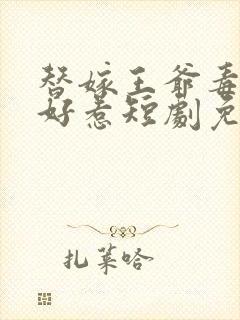 替嫁王爷毒
好惹短劇免
扎莱哈